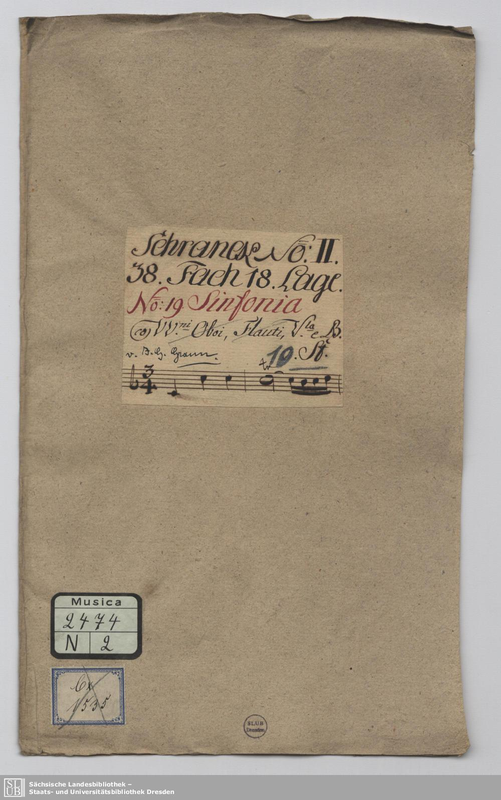 Schranck No: II.
38. Fach 18. Lage.
No: 19 Sinfonia
VVni Oboi, Flauti, Vla e B.
v. Graun.
19. St.
3
4
tr
Musica
2474
N 2
Cx
535
SLUB
Dresden
SLUB
Sächsische Landesbibliothek –
Staats- und Universitätsbibliothek Dresden